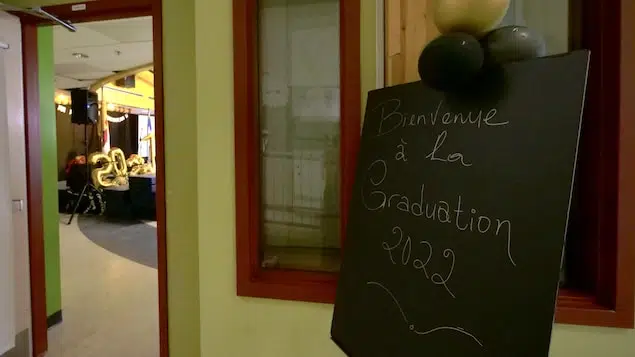 20
Bienvenue
à la
Graduation
2022